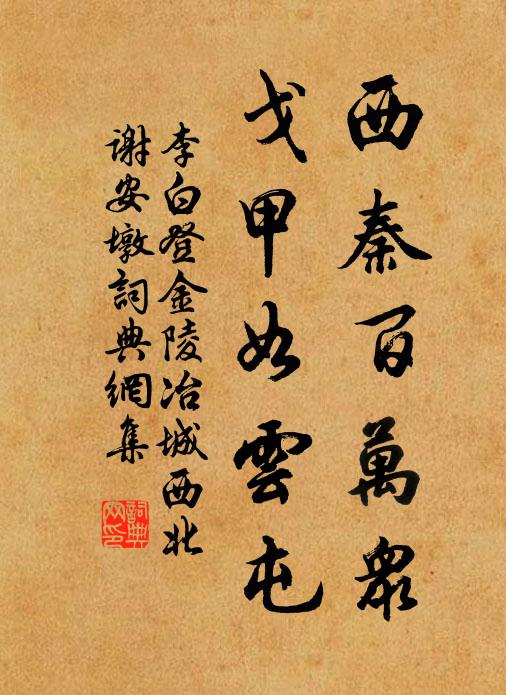 西秦百萬眾
戈甲如雲屯
李白登金陵冶城西北
謝安墩詞典網集
詞典
网印